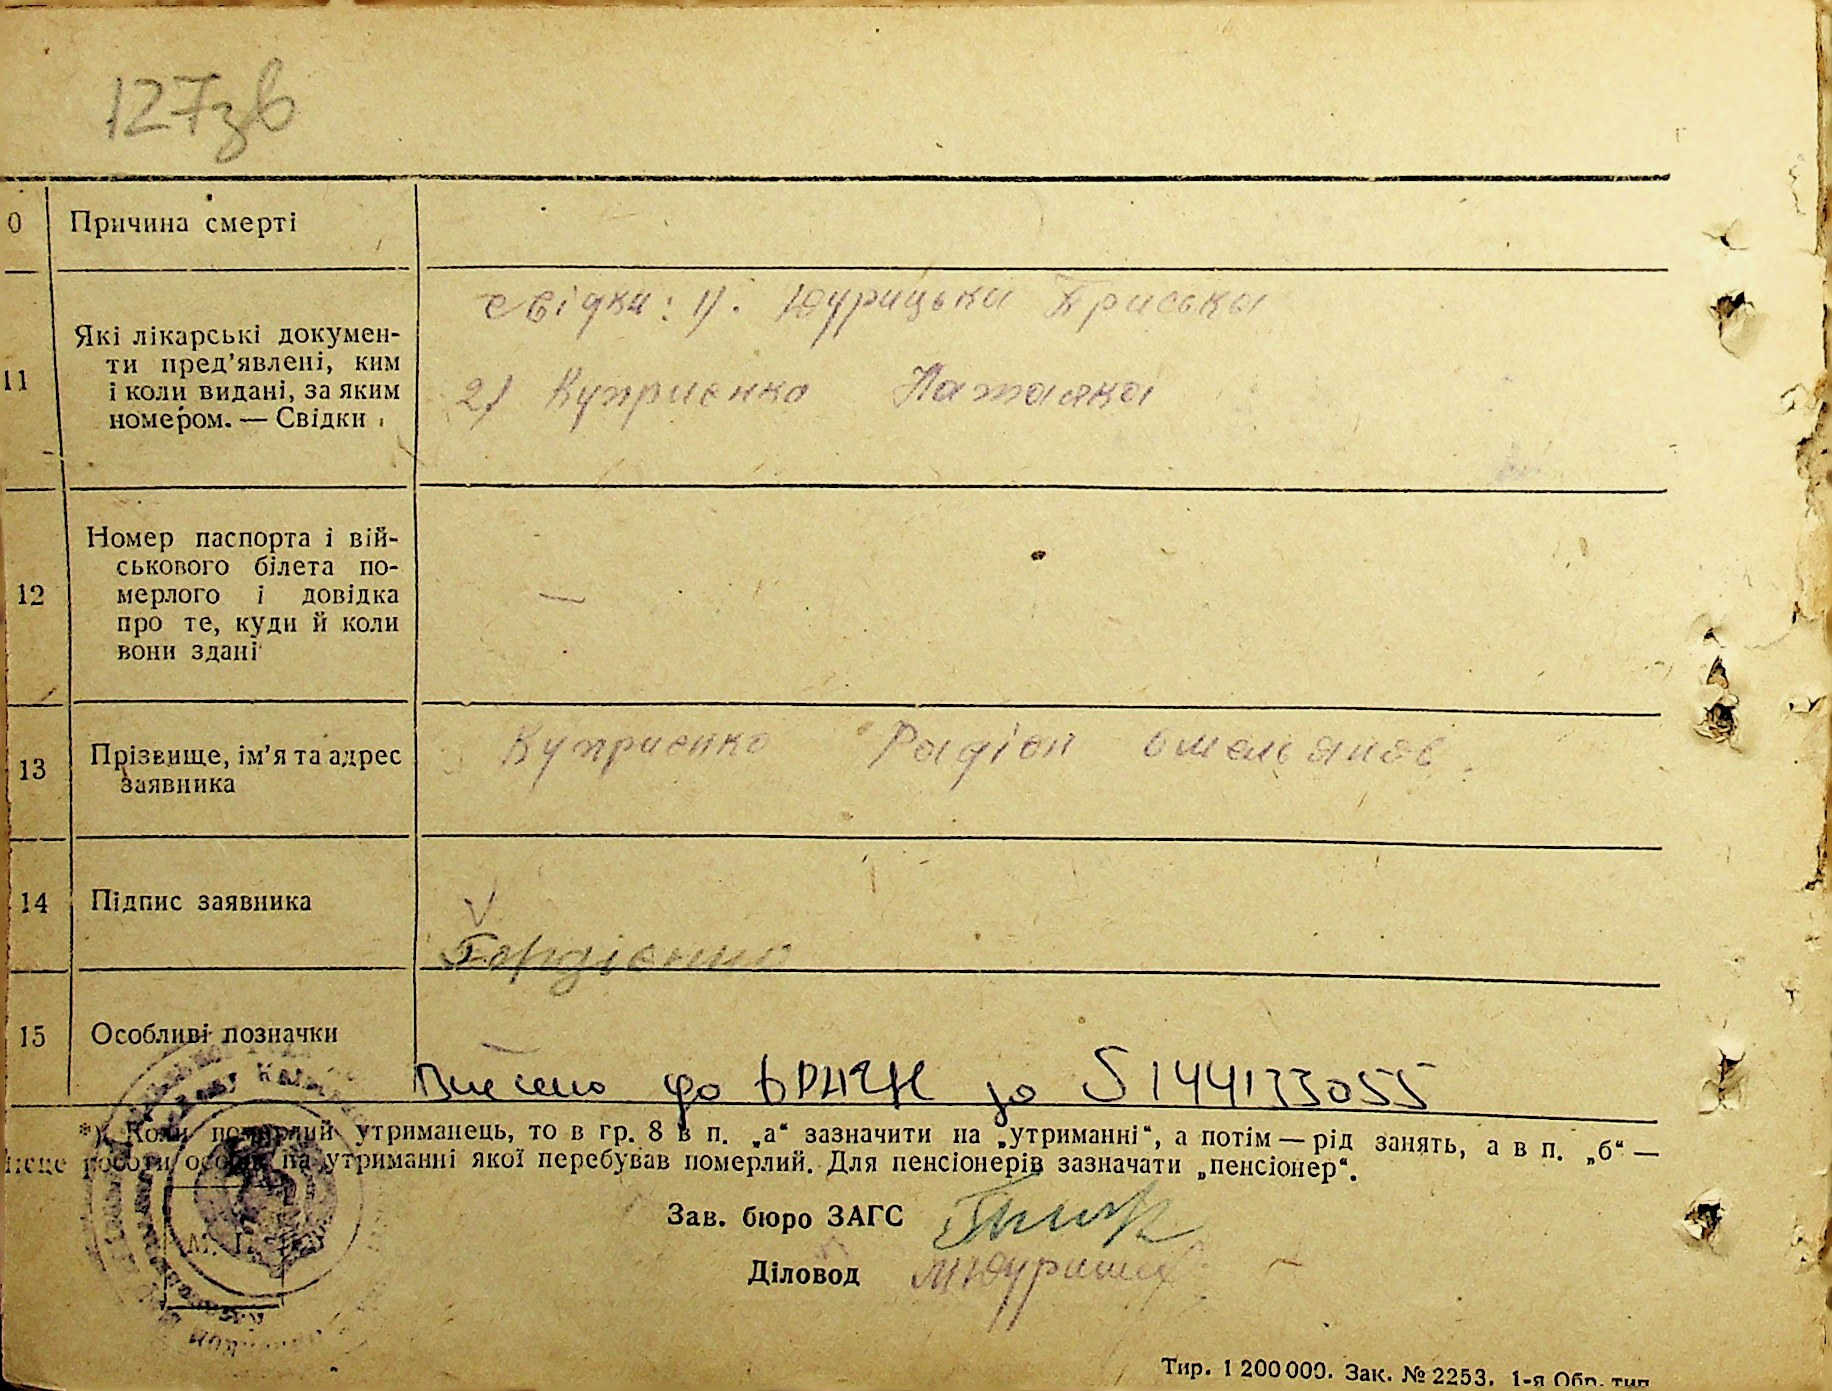 127зв
0 Причина смерті
11 Які лікарські докумен-
ти пред'явлені, ким
і коли видані, за яким
номером. — Свідки
свідки: 1). Юурицька Приська
2) Куприєнко Наталка
12 Номер паспорта і вій-
ськового білета по-
мерлого і довідка
про те, куди й коли
вони здані
—
13 Прізвище, ім'я та адрес
заявника
Куприєнко Радіон Омельянов.
14 Підпис заявника
15 Особливі позначки
Внесено до ДРАЦС за S144133055
*) Коли померлий утриманець, то в гр. 8 в п. „а“ зазначити на „утриманні“, а потім — рід занять, а в п. „б“ —
роботи особи, на утриманні якої перебував померлий. Для пенсіонерів зазначати „пенсіонер“.
Зав. бюро ЗАГС
Діловод
М. П.
Тир. 1 200 000. Зак. № 2253. 1-я Обр. тип